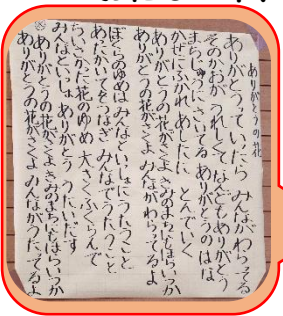 ありがとうの花
ありがとうっていったら みんながわらってる
そのかおが うれしくて なんどもありがとう
まちじゅうにさいてる ありがとうのはな
かぜにふかれ あしたに とんでいく
ありがとうの花がさくよ きみのまちにもほらいつか
ありがとうの花がさくよ みんながわらってるよ
ぼくらのゆめは みんなといっしょにうたうこと
あったかいてをつなぎ みんなでうたうこと
ちいさかった花のゆめ 大きくふくらんで
みんなといっしょ ありがとう うたいだす
ありがとうの花がさくよ きみのまちにもほらいつか
ありがとうの花がさくよ みんながうたってるよ